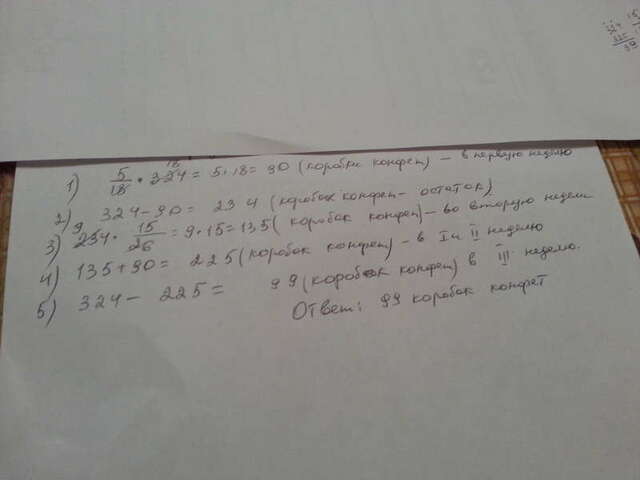 324
225
99
1) 5/18 • 324 = 5•18 = 90 (коробки конфет) – в первую неделю
2) 324 – 90 = 234 (коробок конфет – остаток)
3) 234 • 15/26 = 9•15 = 135 (коробок конфет) – во вторую неделю
4) 135 + 90 = 225 (коробок конфет) – в I и II неделю
5) 324 – 225 = 99 (коробок конфет) в III неделю.
Ответ: 99 коробок конфет